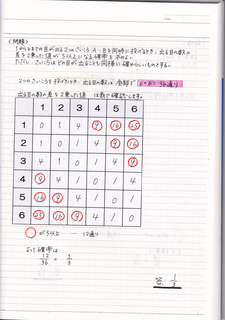 <問題>
1から6までの目が出る2つのさいころA、Bを同時に投げるとき、出る目の数の
差を2乗した値が5以上になる確率を求めよ。
ただし、さいころはどの目が出ることも同様に確からしいものとする。
2つのさいころを投げたとき、出る目の数は、全部で 6×6= 36通り
出る目の数の差を2乗した値 は表で確認します。
1 2 3 4 5 6
1 0 1 4 9 16 25
2 1 0 1 4 9 16
3 4 1 0 1 4 9
4 9 4 1 0 1 4
5 16 9 4 1 0 1
6 25 16 9 4 1 0
○ が5以上 … 12通り
よって確率は
12/36 = 1/3
答 1/3